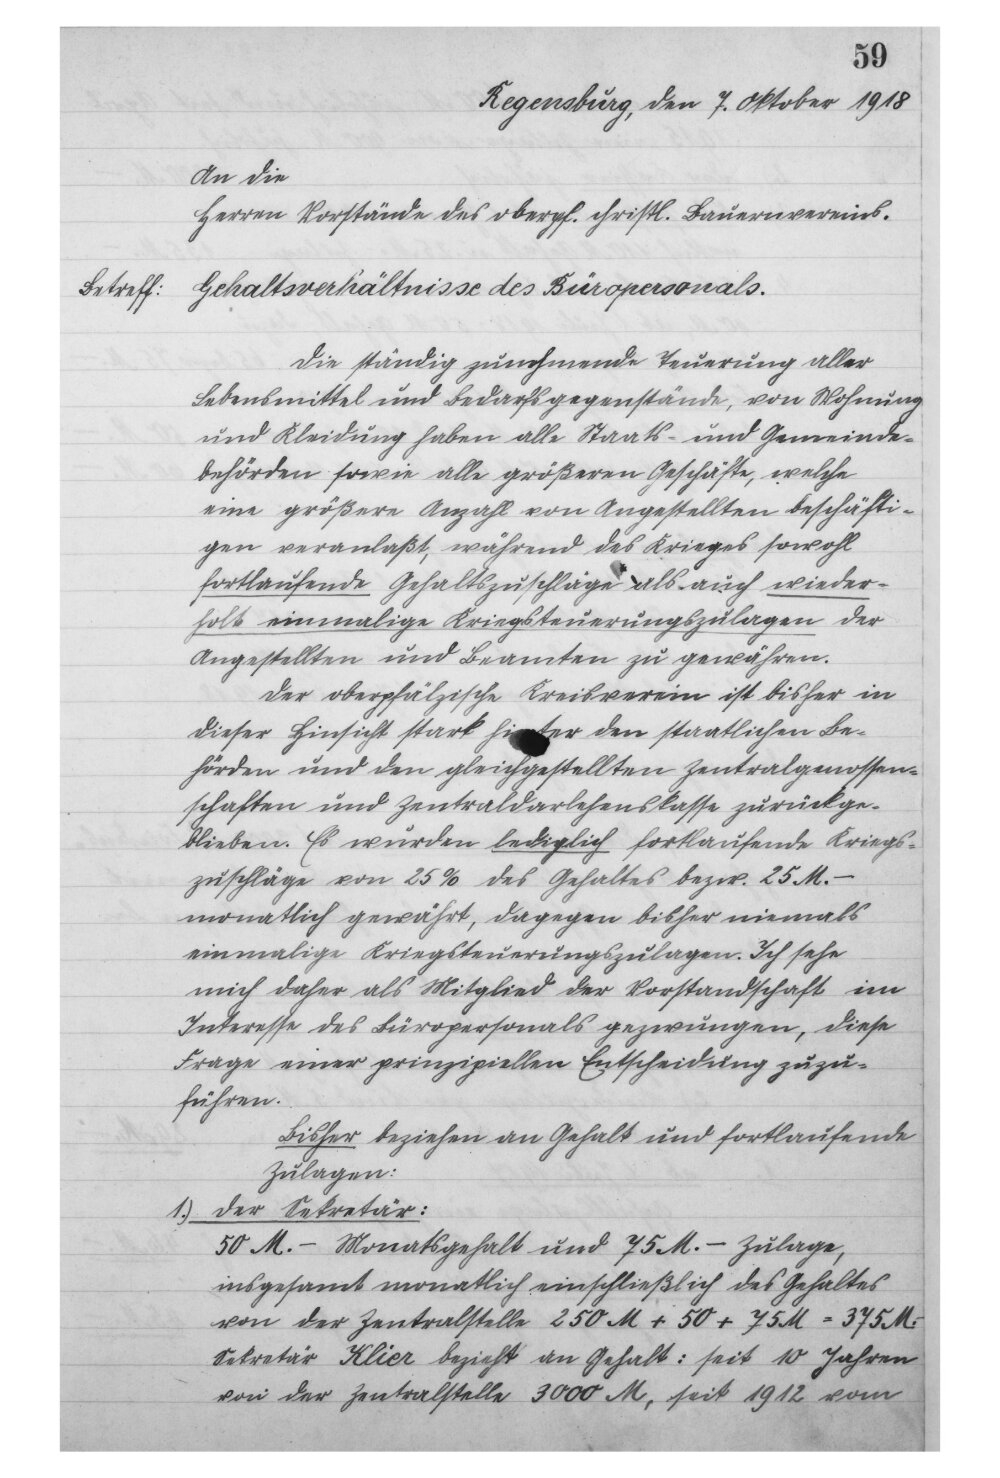 59
Regensburg, den 7. Oktober 1918
An die
Herren Vorstände des oberpf. christl. Bauernvereins.
Betreff: Gehaltsverhältnisse des Büropersonals.
Die ständig zunehmende Teuerung aller
Lebensmittel und Bedarfsgegenstände, von Wohnung
und Kleidung haben alle Staats- und Gemeinde-
behörden sowie alle größeren Geschäfte, welche
eine größere Anzahl von Angestellten beschäfti-
gen veranlaßt, während des Krieges sowohl
fortlaufende Gehaltszuschläge als auch wieder-
holt einmalige Kriegsteuerungszulagen der
Angestellten und Beamten zu gewähren.
Der oberpfälzische Kreisverein ist bisher in
dieser Hinsicht stark hinter den staatlichen Be-
hörden und den gleichgestellten Zentralgenossen-
schaften und Zentraldarlehenskasse zurückge-
blieben. Es wurden lediglich fortlaufende Kriegs-
zuschläge von 25% des Gehaltes bezw. 25 M.-
monatlich gewährt, dagegen bisher niemals
einmalige Kriegsteuerungszulagen. Ich sehe
mich daher als Mitglied der Vorstandschaft im
Interesse des Büropersonals gezwungen, diese
Frage einer prinzipiellen Entscheidung zuzu-
führen.
Bisher beziehen an Gehalt und fortlaufende
Zulagen:
1.) Der Sekretär:
50 M.- Monatsgehalt und 75 M.- Zulage,
insgesamt monatlich einschließlich des Gehaltes
von der Zentralstelle 250 M + 50 + 75 M = 375 M.-
Sekretär Klier bezieht an Gehalt: seit 10 Jahren
von der Zentralstelle 3000 M, seit 1912 vom